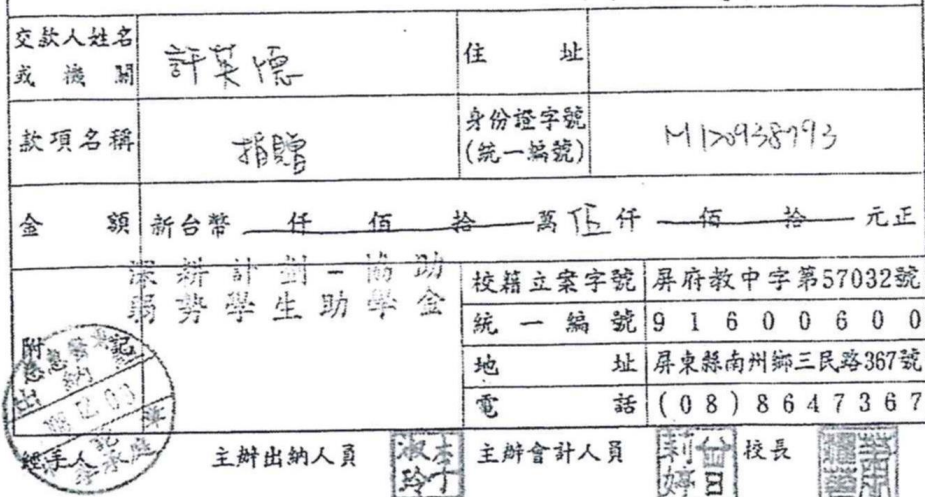 交款人姓名或機關 許英德 住址
款項名稱 捐贈 身份證字號(統一編號) M120938793
金額 新台幣 仟 佰 拾 萬 伍 仟 佰 拾 元正
深耕計劃-協助
弱勢學生助學金
附記
校籍立案字號 屏府教中字第57032號
統一編號 91600600
地址 屏東縣南州鄉三民路367號
電話 (08)8647367
經手人 主辦出納人員 主辦會計人員 校長